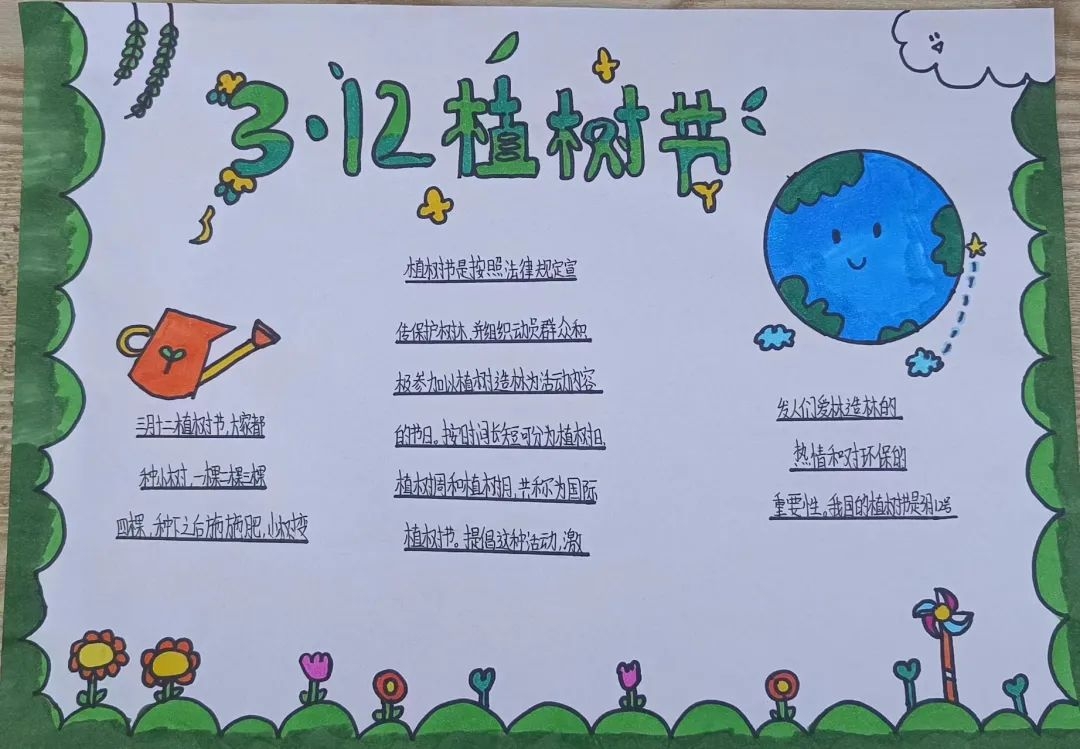 3·12植树节
三月十二植树节,大家都
种小树,一棵二棵三棵
四棵,种下之后施施肥,小树变
植树节是按照法律规定宣
传保护树木,并组织动员群众积
极参加以植树造林为活动内容
的节日。按时间长短可分为植树日,
植树周和植树月,共称为国际
植树节。提倡这种活动,激
发人们爱林造林的
热情和对环保的
重要性。我国的植树节是3月12号